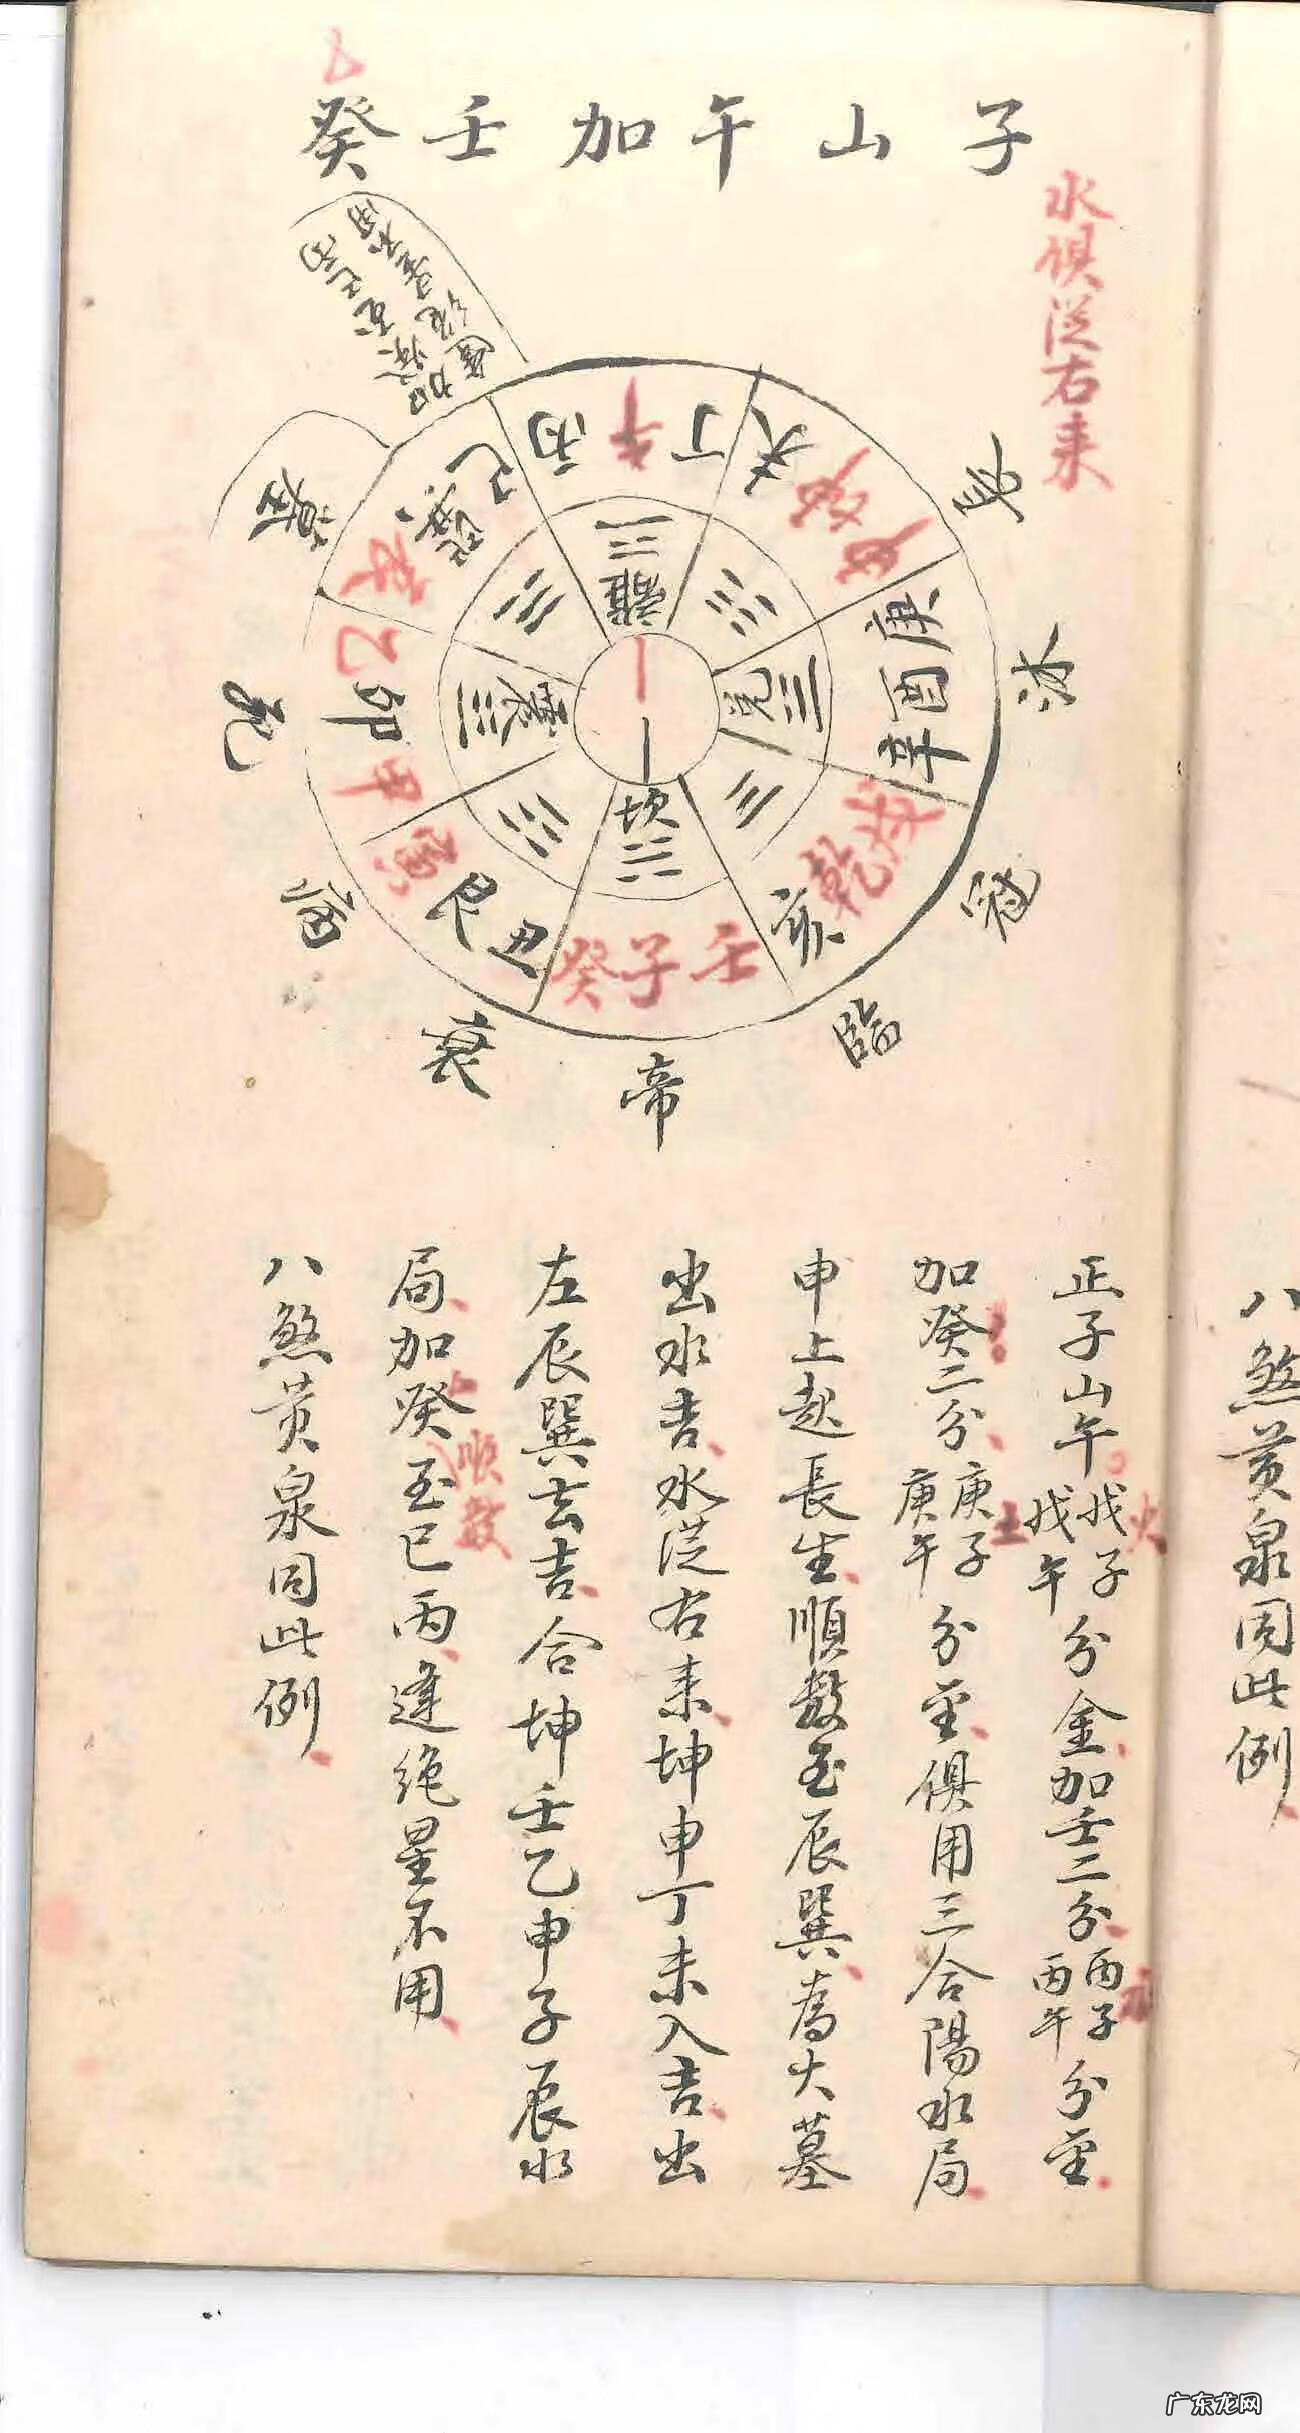 子山午加壬癸
水俱從右来
丙午丁
未坤申
庚酉辛
戌乾亥
壬子癸
丑艮寅
甲卯乙
辰巽巳
離
兌
坎
震
長
沐
冠
臨
帝
衰
病
死
墓
加癸至巳丙
逢絶星不用
正子山午戊子戊午分金、加壬二分、丙子丙午分金、
加癸二分、庚子庚午分金、俱用三合陽水局、
申上起長生、順數至辰巽、為大墓
出水吉、水從右来、坤申丁未入吉、出
左辰巽去吉、合坤壬乙申子辰水
局、加癸至巳丙、逢絶星不用、
順數
火
土
水
八煞黄泉同此例、
八煞黄泉同此例、
广东龙网